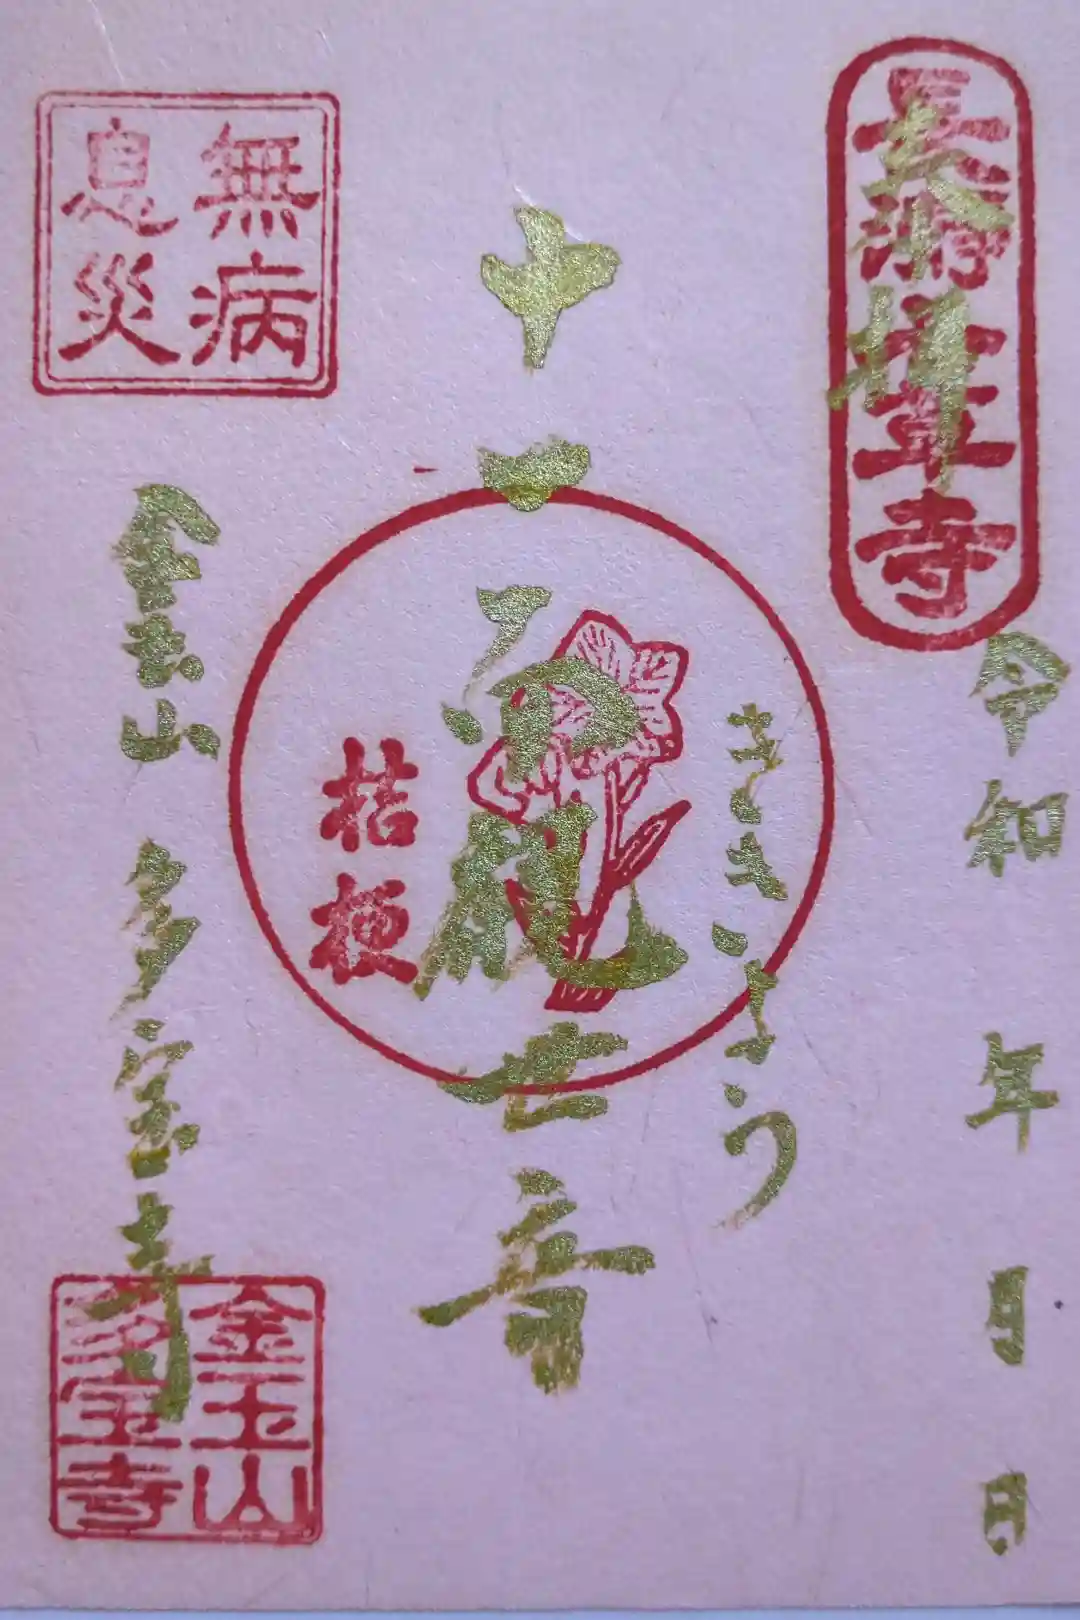 奉拝
長瀞七草寺
令和 年 月 日
ききょう
十一面観世音
桔梗
無病
息災
金玉山 多宝寺
金玉山
多宝寺